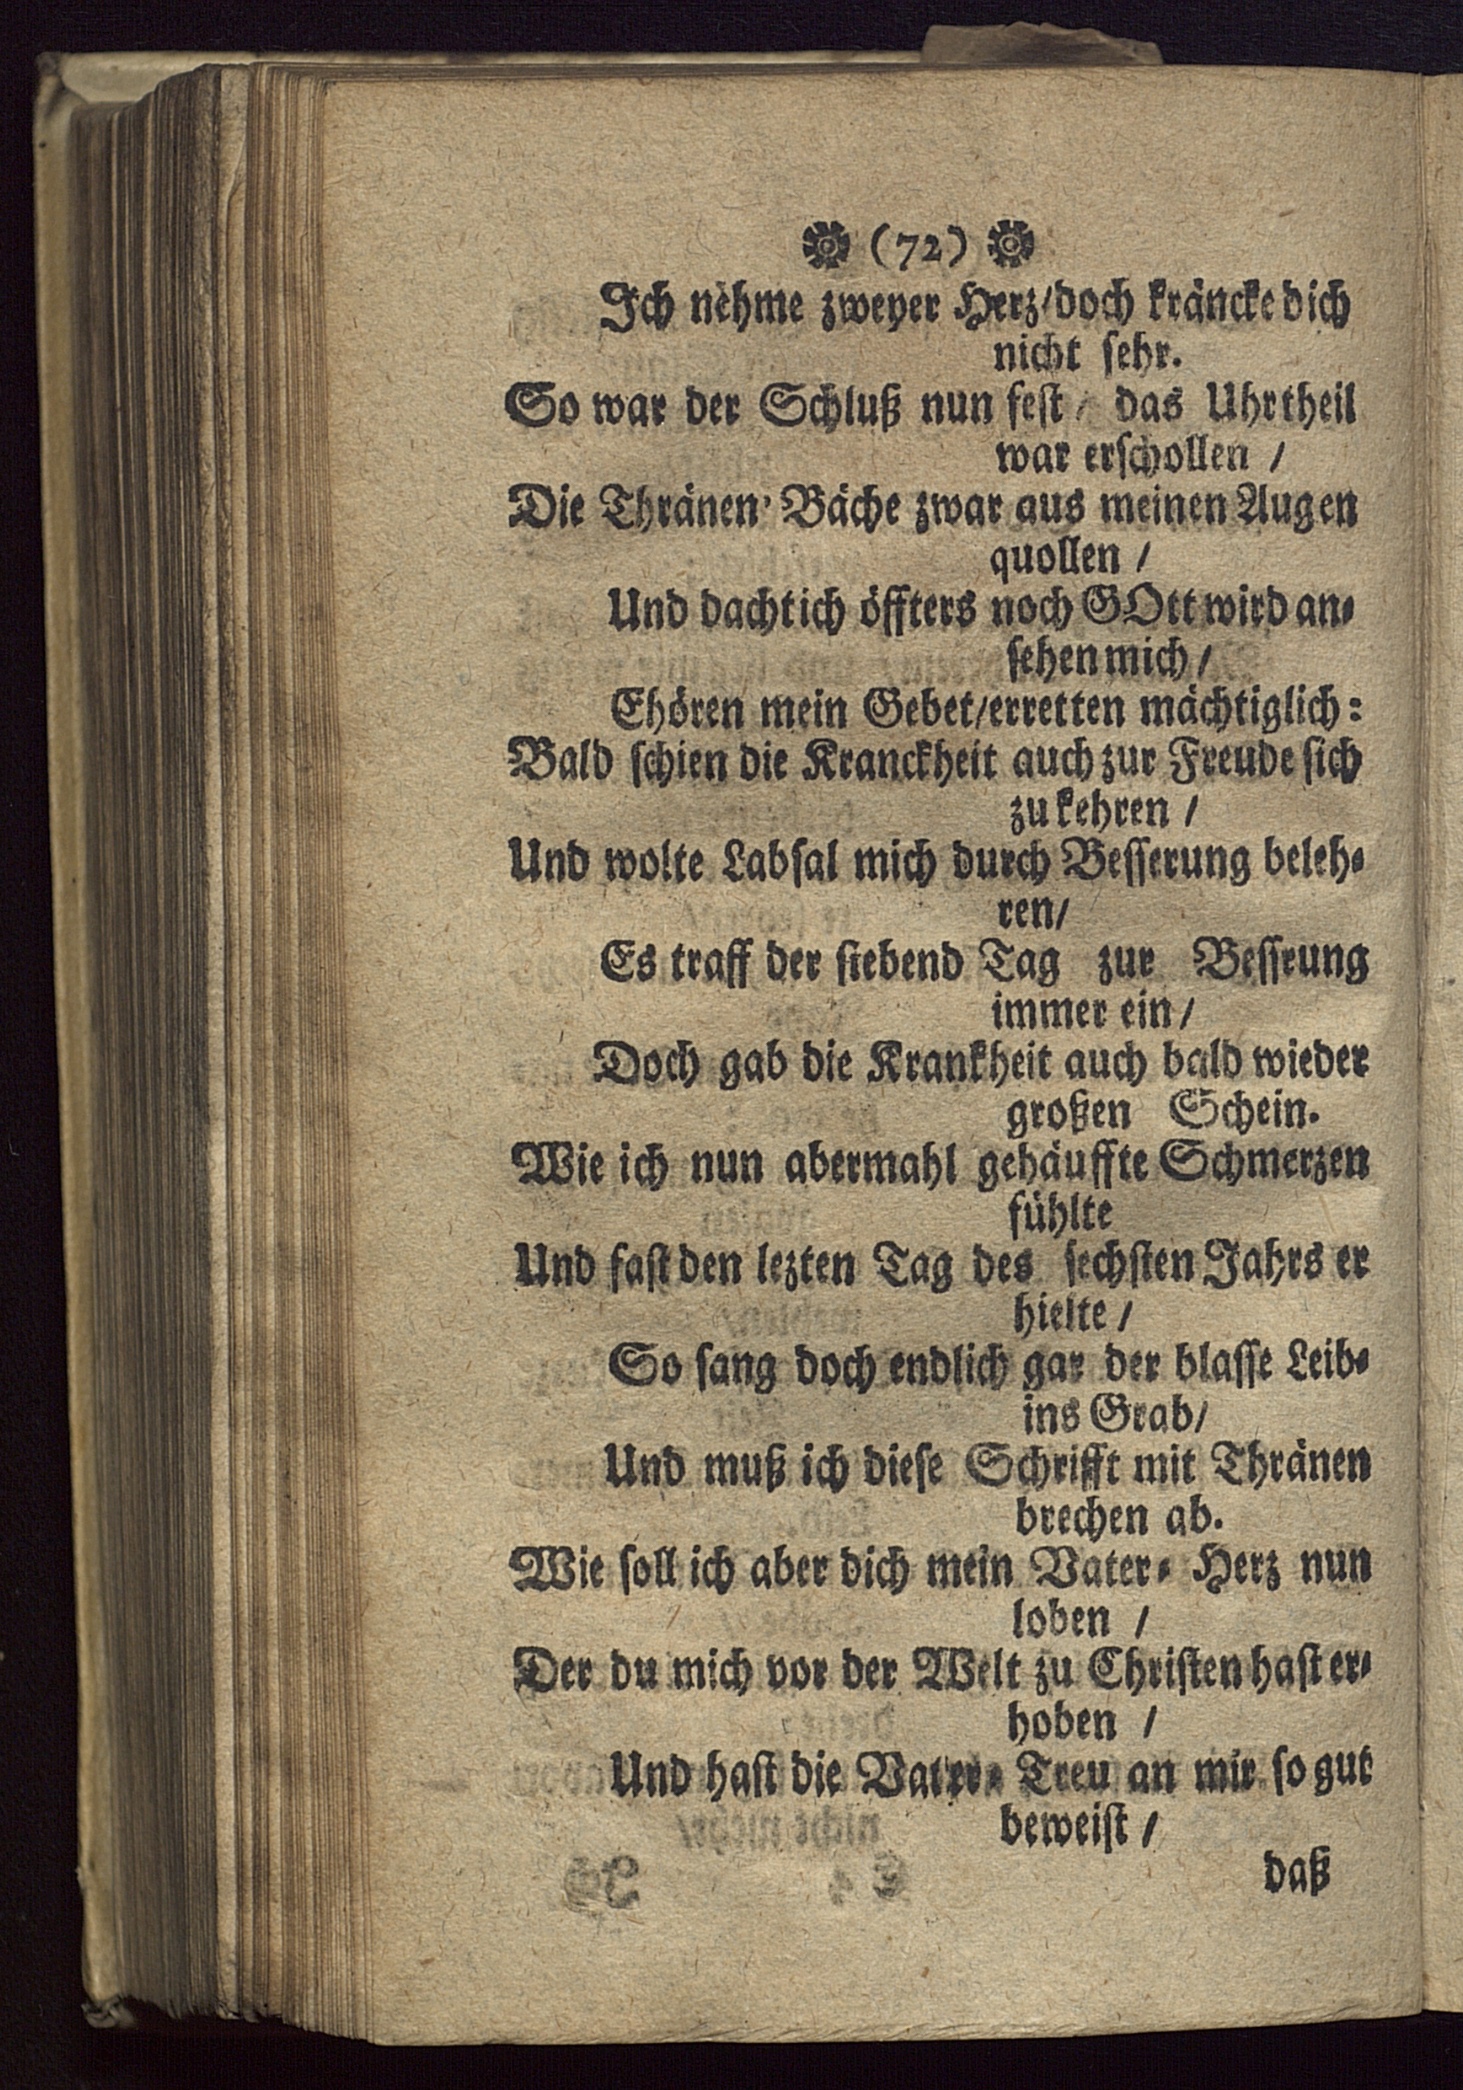 (72)
Ich nehme zweyer Herz/doch kräncke dich
nicht sehr.
So war der Schluß nun fest / das Uhrtheil
war erschollen /
Die Thränen-Bäche zwar aus meinen Augen
quollen /
Und dacht ich öffters noch GOtt wird an-
sehen mich /
Ehören mein Gebet/erretten mächtiglich:
Bald schien die Kranckheit auch zur Freude sich
zu kehren /
Und wolte Labsal mich durch Besserung beleh-
ren/
Es traff der siebend Tag zur Bessrung
immer ein /
Doch gab die Krankheit auch bald wieder
großen Schein.
Wie ich nun abermahl gehäuffte Schmerzen
fühlte
Und fast den lezten Tag des sechsten Jahrs er
hielte /
So sang doch endlich gar der blasse Leib-
ins Grab/
Und muß ich diese Schrifft mit Thränen
brechen ab.
Wie soll ich aber dich mein Vater-Herz nun
loben /
Der du mich vor der Welt zu Christen hast er-
hoben /
Und hast die Vater-Treu an mir so gut
beweist /
daß